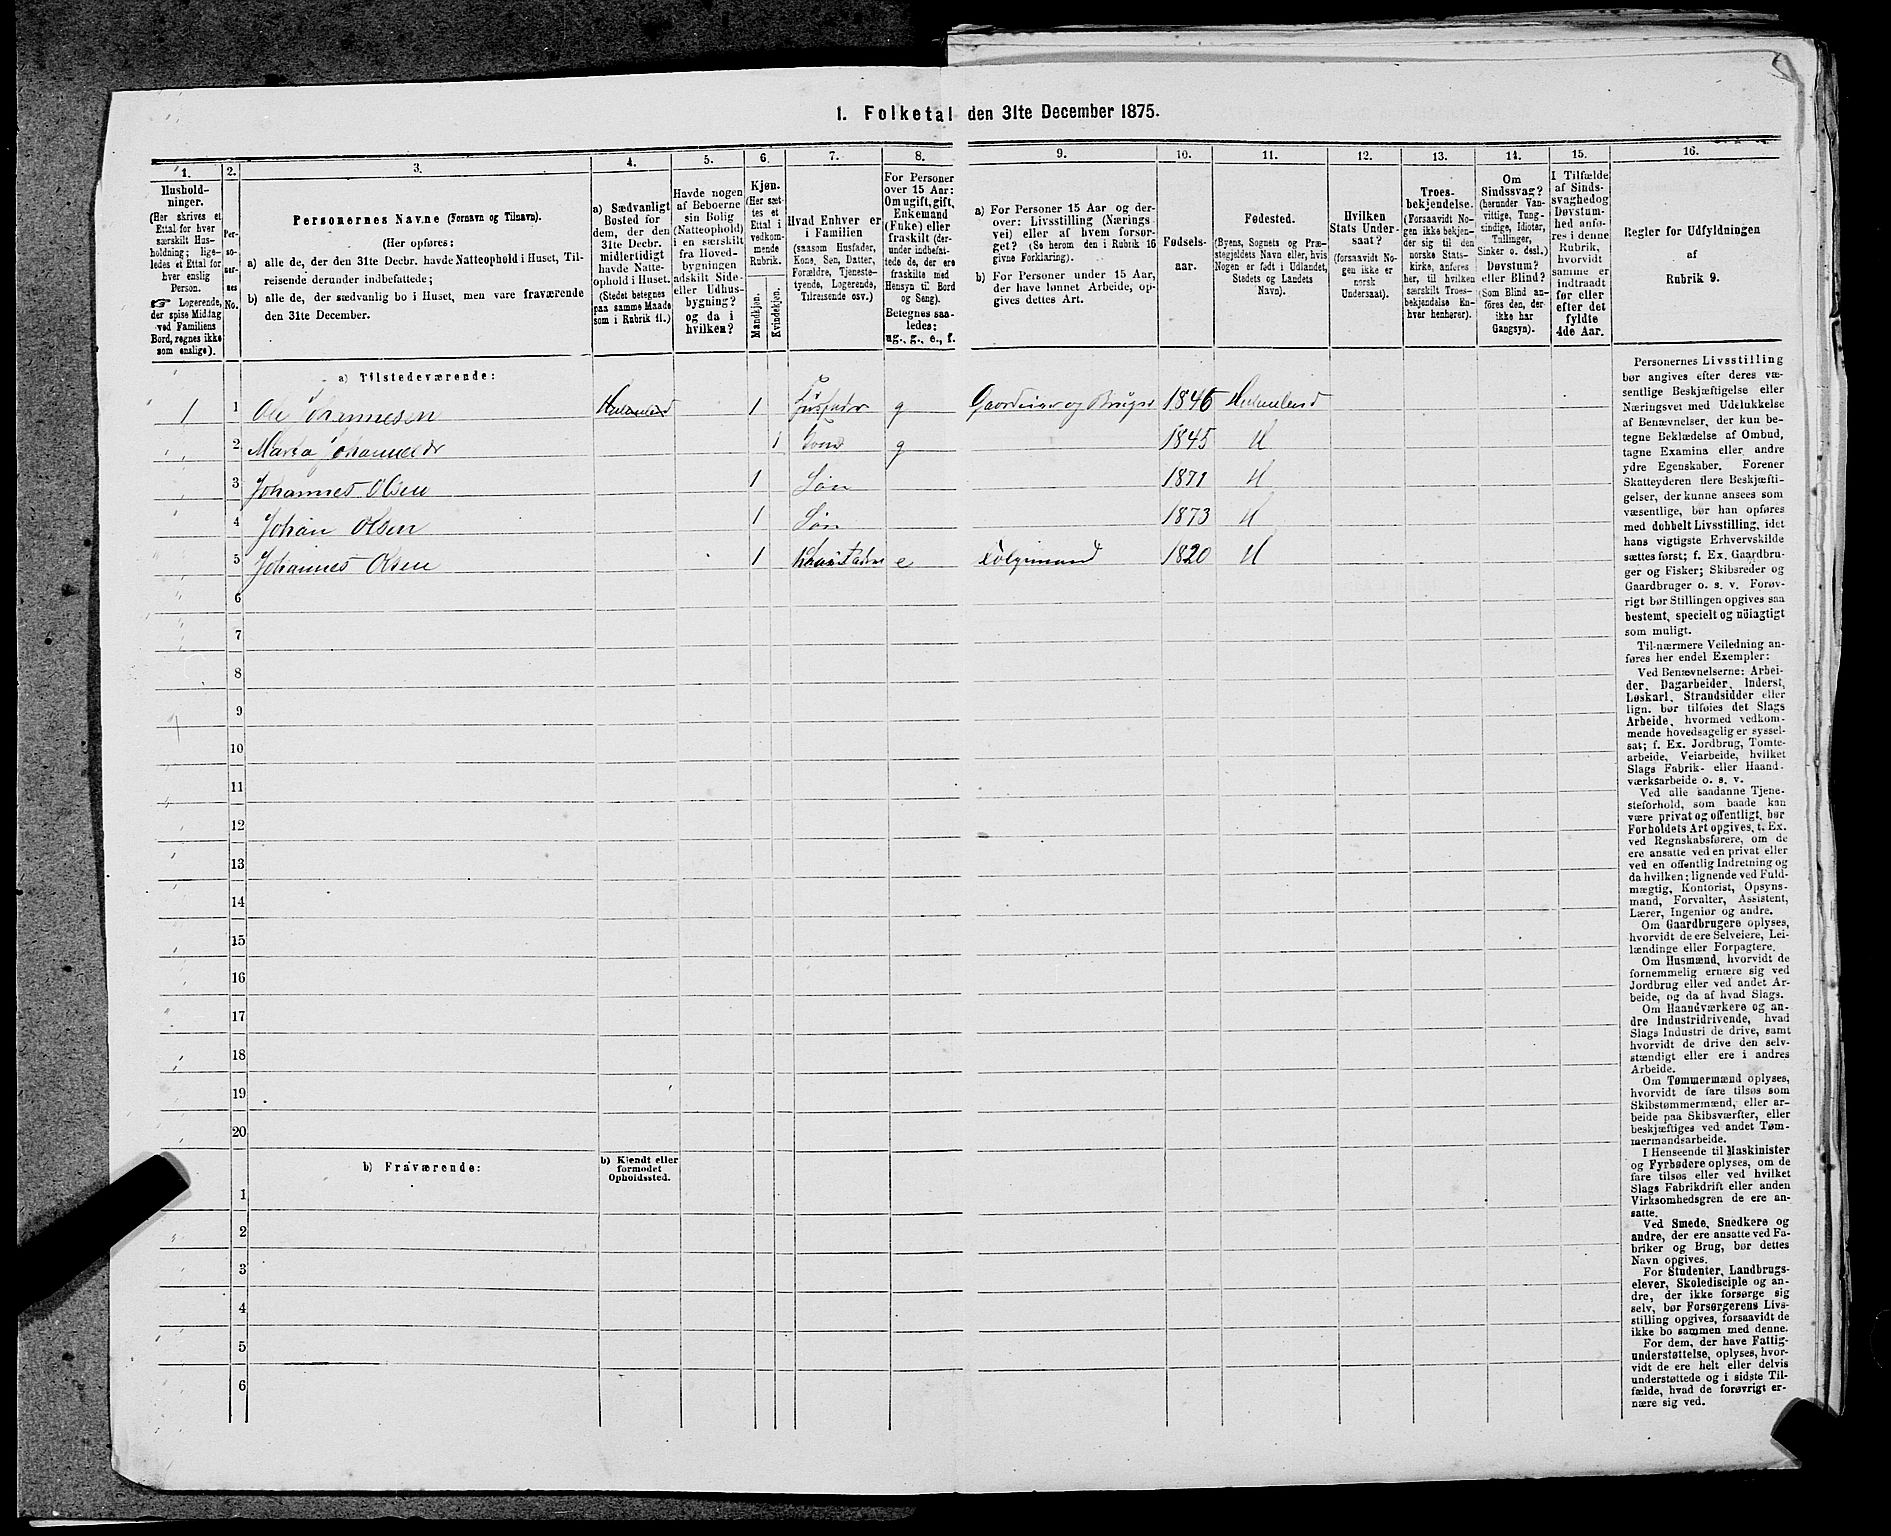 1. Folketal den 31te December 1875.
1.
2.
3.
4.
5.
6.
7.
8.
9.
10.
11.
12.
13.
14.
15.
16.
Hushold-
ninger.
(Her skrives et
Ettal for hver
særskilt Hus-
holdning; lige-
ledes et Ettal for
hver enslig
Person.
☞ Logerende,
der spise Middag
ved Familiens
Bord, regnes ikke
som enslige).
Per-
so-
ner-
nes
No.
Personernes Navne (Fornavn og Tilnavn).
(Her opføres:
a) alle de, der den 31te Decbr. havde Natteophold i Huset, Til-
reisende derunder indbefattede;
b) alle de, der sædvanlig bo i Huset, men vare fraværende
den 31te December.
a) Sædvanligt
Bosted for
dem, der den
31te Decbr.
midlertidigt
havde Natte-
ophold i Huset.
(Stedet betegnes
paa samme Maade
som i Rubrik 11.)
Havde nogen
af Beboerne
sin Bolig
(Natteophold)
i en særskilt
fra Hoved-
bygningen
adskilt Side-
eller Udhus-
bygning?
og da i
hvilken?
Kjøn.
(Her sæt-
tes et
Ettal i
vedkom-
mende
Rubrik.
Mandkjøn.
Kvindekjøn.
Hvad Enhver er
i Familien
(saasom Husfader,
Kone, Søn, Datter,
Forældre, Tjeneste-
tyende, Logerende,
Tilreisende osv.)
For Personer
over 15 Aar:
Om ugift, gift,
Enkemand
(Enke) eller
fraskilt (der-
under indbefat-
tede de, der ere
fraskilte med
Hensyn til Bord
og Seng).
Betegnes saa-
ledes:
ug., g., e., f.
a) For Personer 15 Aar og der-
over: Livsstilling (Nærings
vei) eller af hvem forsør-
get? (Se herom den i Rubrik 16
givne Forklaring).
b) For Personer under 15 Aar,
der have lønnet Arbeide, op-
gives dettes Art.
Fødsels-
aar.
Fødested.
(Byens, Sognets og Præ-
stegjeldets Navn eller, hvis
Nogen er født i Udlandet,
Stedets og Landets
Navn).
Hvilken
Stats Under-
saat?
(forsaavidt No-
gen ikke er
norsk
Undersaat).
Troes-
bekjendelse.
(Forsaavidt No-
gen ikke bekjen-
der sig til den
norske Stats-
kirke, anføres
her, til hvilken
særskilt Troes-
bekjendelse En-
hver henhører).
Om
Sindssvag?
(herunder Van-
vittige, Tung-
sindige, Idioter,
Tullinger,
Sinker o. desl.)
Døvstum?
eller Blind?
(Som Blind an-
føres den, der
ikke har
Gangsyn).
I Tilfælde
af Sinds-
svaghed og
Døvstum-
hed anfø-
res i denne
Rubrik,
hvorvidt
samme er
indtraadt
før eller
efter det
fyldte
4de Aar.
Regler for Udfyldningen
af
Rubrik 9.
a) Tilstedeværende:
1 1 Ole Johannesen 1 Husfader g Gaardeier og Bruger 1846
2 Marta 1 Kone g 1845 H
3 Johannes Olsen 1 Søn 1871 H
4 Johan Olsen 1 Søn 1873 H
5 Johannes Olsen 1 e 1820 H
6
7
8
9
10
11
12
13
14
15
16
17
18
19
20
b) Fraværende:
b) Kjendt eller
formodet
Opholdssted.
1
2
3
4
5
6
Personernes Livsstilling
bør angives efter deres væ-
sentlige Beskjæftigelse eller
Næringsvei med Udelukkelse
af Benævnelser, der kun be-
tegne Beklædelse af Ombud,
tagne Examina eller andre
ydre Egenskaber. Forener
Skatteyderen flere Beskjæfti-
gelser, der kunne ansees som
væsentlige, bør han opføres
med dobbelt Livsstilling, idet
hans vigtigste Erhvervskilde
sættes først; f. Ex. Gaardbru-
ger og Fisker; Skibsreder og
Gaardbruger o. s. v. Forøv-
rigt bør Stillingen opgives saa
bestemt, specielt og nöiagtigt
som muligt.
Til nærmere Veiledning an-
føres her endel Exempler:
Ved Benævnelserne: Arbei-
der, Dagarbeider, Inderst,
Løskarl, Strandsidder eller
lign. bør tilføies det Slags
Arbeide, hvormed vedkom-
mende hovedsagelig er syssel-
sat; f. Ex. Jordbrug, Tomte-
arbeide, Veiarbeide, hvilket
Slags Fabrik- eller Haand-
værksarbeide o. s. v.
Ved alle saadanne Tjene-
steforhold, som baade kan
være privat og offentligt, bør
Forholdets Art opgives, t. Ex.
ved Regnskabsførere, om de
ere ansatte ved en privat eller
ved en offentlig Indretning og
da hvilken; lignende ved Fuld-
mægtig, Kontorist, Opsyns-
mand, Forvalter, Assistent,
Lærer, Ingeniør og andre.
Om Gaardbrugere oplyses,
hvorvidt de ere Selveiere, Lei-
lændinge eller Forpagtere.
Om Husmænd, hvorvidt de
fornemmelig ernære sig ved
Jordbrug eller ved andet Ar-
beide, og da af hvad Slags.
Om Haandværkere og an-
dre Industridrivende, hvad
Slags Industri de drive, samt
hvorvidt de drive den selv-
stændigt eller ere i andres
Arbeide.
Om Tømmermænd oplyses,
hvorvidt de fare tilsøs som
Skibstømmermænd, eller ar-
beide paa Skibsværfter, eller
beskjæftiges ved andet Tøm-
mermandsarbeide.
I Henseende til Maskinister
og Fyrbødere oplyses, om de
fare tilsøs eller ved hvilket
Slags Fabrikdrift eller anden
Virksomhedsgren de ere an-
satte.
Ved Smede, Snedkere og
andre, der ere ansatte ved Fa-
briker og Brug, bør dettes
Navn opgives.
For Studenter, Landbrugs-
elever, Skoledisciple og an-
dre, der ikke forsørge sig
selv, bør Forsørgerens Livs-
stilling opgives, forsaavidt de
ikke bo sammen med denne.
For dem, der have Fattig-
understøttelse, oplyses, hvor-
vidt de ere helt eller delvis
understøttede og i sidste Til-
fælde, hvad de forøvrigt er-
nære sig ved.